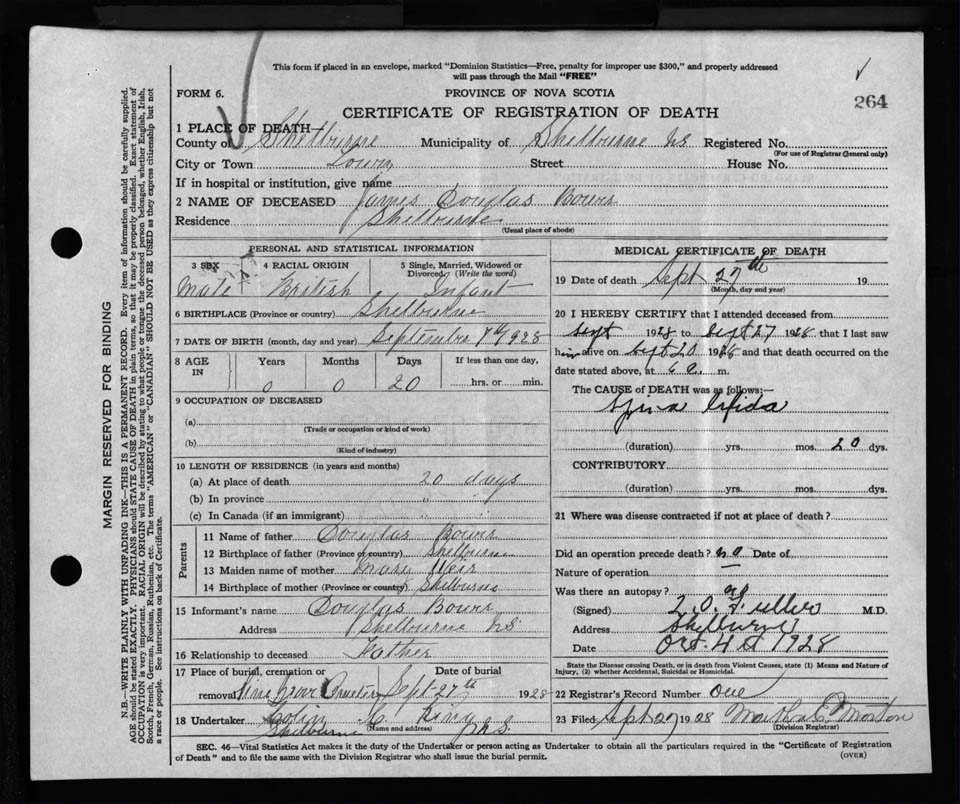 This form if placed in an envelope, marked "Dominion Statistics—Free, penalty for improper use $300," and properly addressed
will pass through the Mail "FREE"
FORM 6.
PROVINCE OF NOVA SCOTIA
264
CERTIFICATE OF REGISTRATION OF DEATH
1 PLACE OF DEATH—
County of Shelburne Municipality of Shelburne NS Registered No.
(For use of Registrar General only)
City or Town Town Street House No.
If in hospital or institution, give name
2 NAME OF DECEASED James Douglas Bower
Residence Shelburne
(Usual place of abode)
PERSONAL AND STATISTICAL INFORMATION
3 SEX 4 RACIAL ORIGIN 5 Single, Married, Widowed or
Divorced, (Write the word)
Male British Infant
6 BIRTHPLACE (Province or country) Shelburne
7 DATE OF BIRTH (month, day and year) September 7 1928
8 AGE IN Years Months Days If less than one day,
0 0 20 hrs. or min.
9 OCCUPATION OF DECEASED
(a)
(Trade or occupation or kind of work)
(b)
(Kind of industry)
10 LENGTH OF RESIDENCE (in years and months)
(a) At place of death 20 days
(b) In province " "
(c) In Canada (if an immigrant) " "
Parents
11 Name of father Douglas Bower
12 Birthplace of father (Province or country) Shelburne
13 Maiden name of mother Mary Weir
14 Birthplace of mother (Province or country) Shelburne
15 Informant's name Douglas Bower
Address Shelburne NS
16 Relationship to deceased Father
17 Place of burial, cremation or Date of burial
removal Pine Grove Cemetery Sept 27th 1928
18 Undertaker Colin C. King
(Name and address)
Shelburne N.S.
MEDICAL CERTIFICATE OF DEATH
19 Date of death Sept 27th 19
(Month, day and year)
20 I HEREBY CERTIFY that I attended deceased from
Sept 1928 to Sept 27 1928 that I last saw
him alive on Sept 20 1928 and that death occurred on the
date stated above, at 6 a. m.
The CAUSE of DEATH was as follows:—
Spina bifida
(duration) yrs. mos. 20 dys.
CONTRIBUTORY
(duration) yrs. mos. dys.
21 Where was disease contracted if not at place of death?
Did an operation precede death? no Date of
Nature of operation —
Was there an autopsy? no
(Signed) L. O. Fuller M.D.
Address Shelburne
Date Oct. 4 1928
State the Disease causing Death, or in death from Violent Causes, state (1) Means and Nature of
Injury, (2) whether Accidental, Suicidal or Homicidal.
22 Registrar's Record Number One
23 Filed Sept 27 1928 Martha E Morton
(Division Registrar)
SEC. 46—Vital Statistics Act makes it the duty of the Undertaker or person acting as Undertaker to obtain all the particulars required in the "Certificate of Registration
of Death" and to file the same with the Division Registrar who shall issue the burial permit.
(OVER)
MARGIN RESERVED FOR BINDING
N.B.—WRITE PLAINLY WITH UNFADING INK—THIS IS A PERMANENT RECORD. Every item of information should be carefully supplied.
AGE should be stated EXACTLY. PHYSICIANS should STATE CAUSE OF DEATH in plain terms, so that it may be properly classified. Exact statement of
OCCUPATION is very important. RACIAL ORIGIN will be described by stating to what people or tongue the deceased person belonged, whether English, Irish,
Scotch, French, German, Russian, Ruthenian, etc. The terms "AMERICAN" or "CANADIAN" SHOULD NOT BE USED as they express citizenship but not
a race or people. See instructions on back of Certificate.